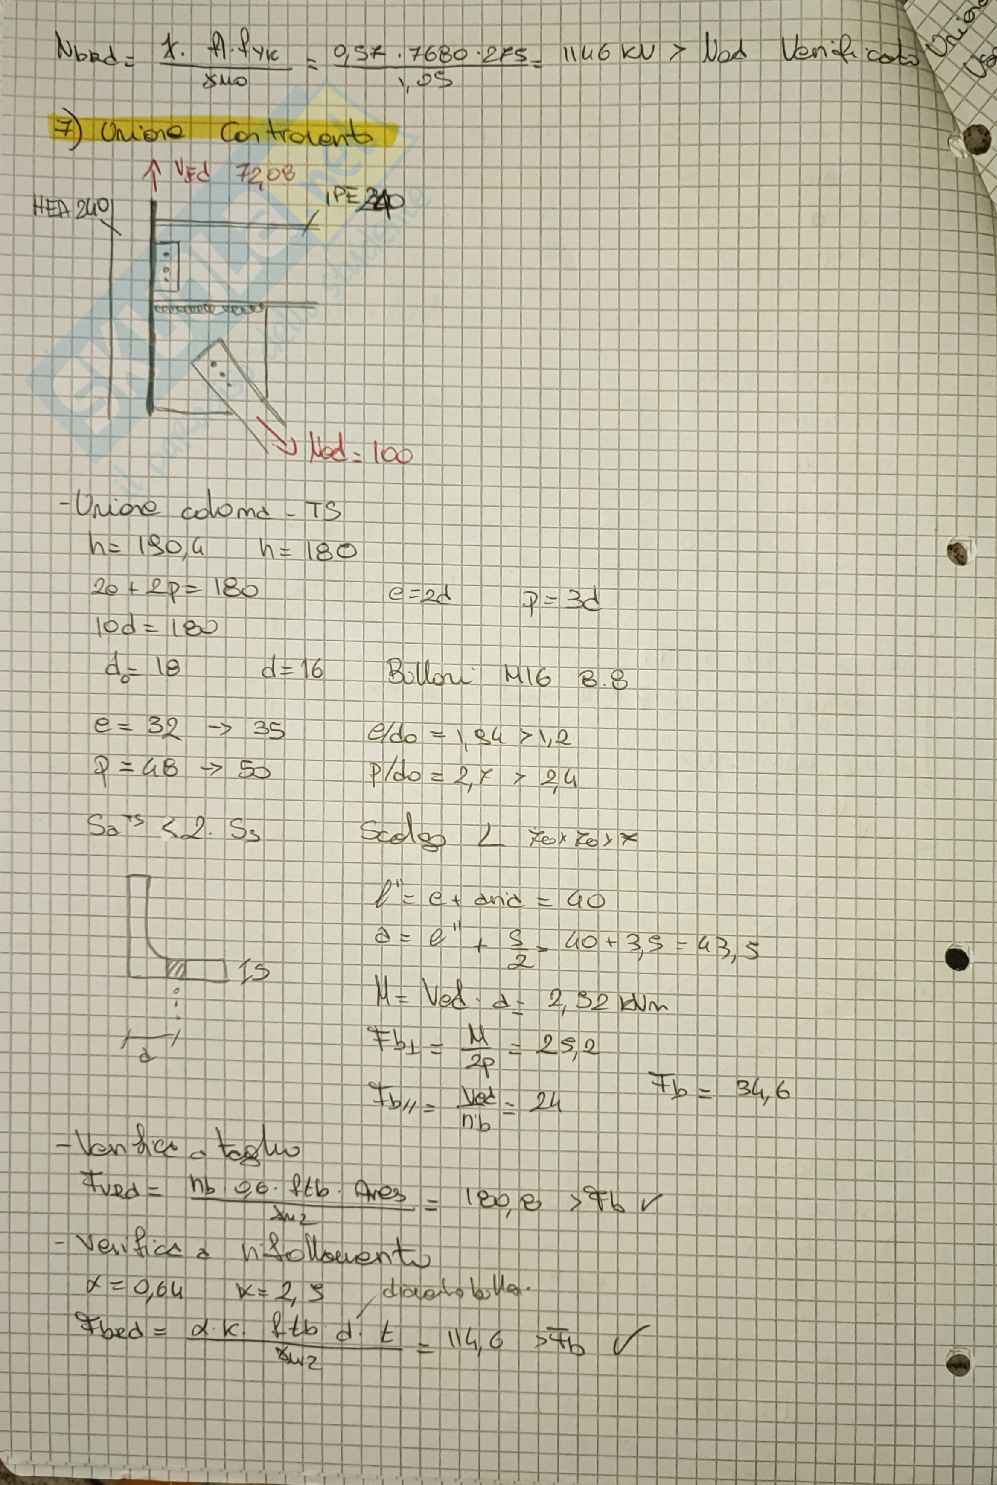 Nbrd = χ · A · fyk / γM0 = 0,57 · 7680 · 275 / 1,05 = 1146 kN > Nod Verificato
7) Unione Controvento
↑ VEd 72,08
HEA 240
IPE 240
Nod = 100
- Unione colonna - TS
h = 190,4 h = 180
2e + 2p = 180 e = 2d p = 3d
10d = 180
d₀ = 18 d = 16 Bulloni M16 8.8
e = 32 → 35 e/do = 1,94 > 1,2
p = 48 → 50 p/do = 2,7 > 2,4
Sa^TS < 2 · Ss Scelgo L 70 x 70 x 7
15
a
l" = e + = 40
a = e" + s/2 = 40 + 3,5 = 43,5
M = Ved · a = 2,92 kNm
Fb⊥ = M / 2p = 29,2
Fb// = Ved / nb = 24 Fb = 34,6
- Verifica a taglio
Fved = nb 0,6 · ftb · Ares / γM2 = 180,8 > Fb ✓
- Verifica a rifollamento
α = 0,64 k = 2,5
Fbed = α · k · ftb d · t / γM2 = 114,6 > Fb ✓